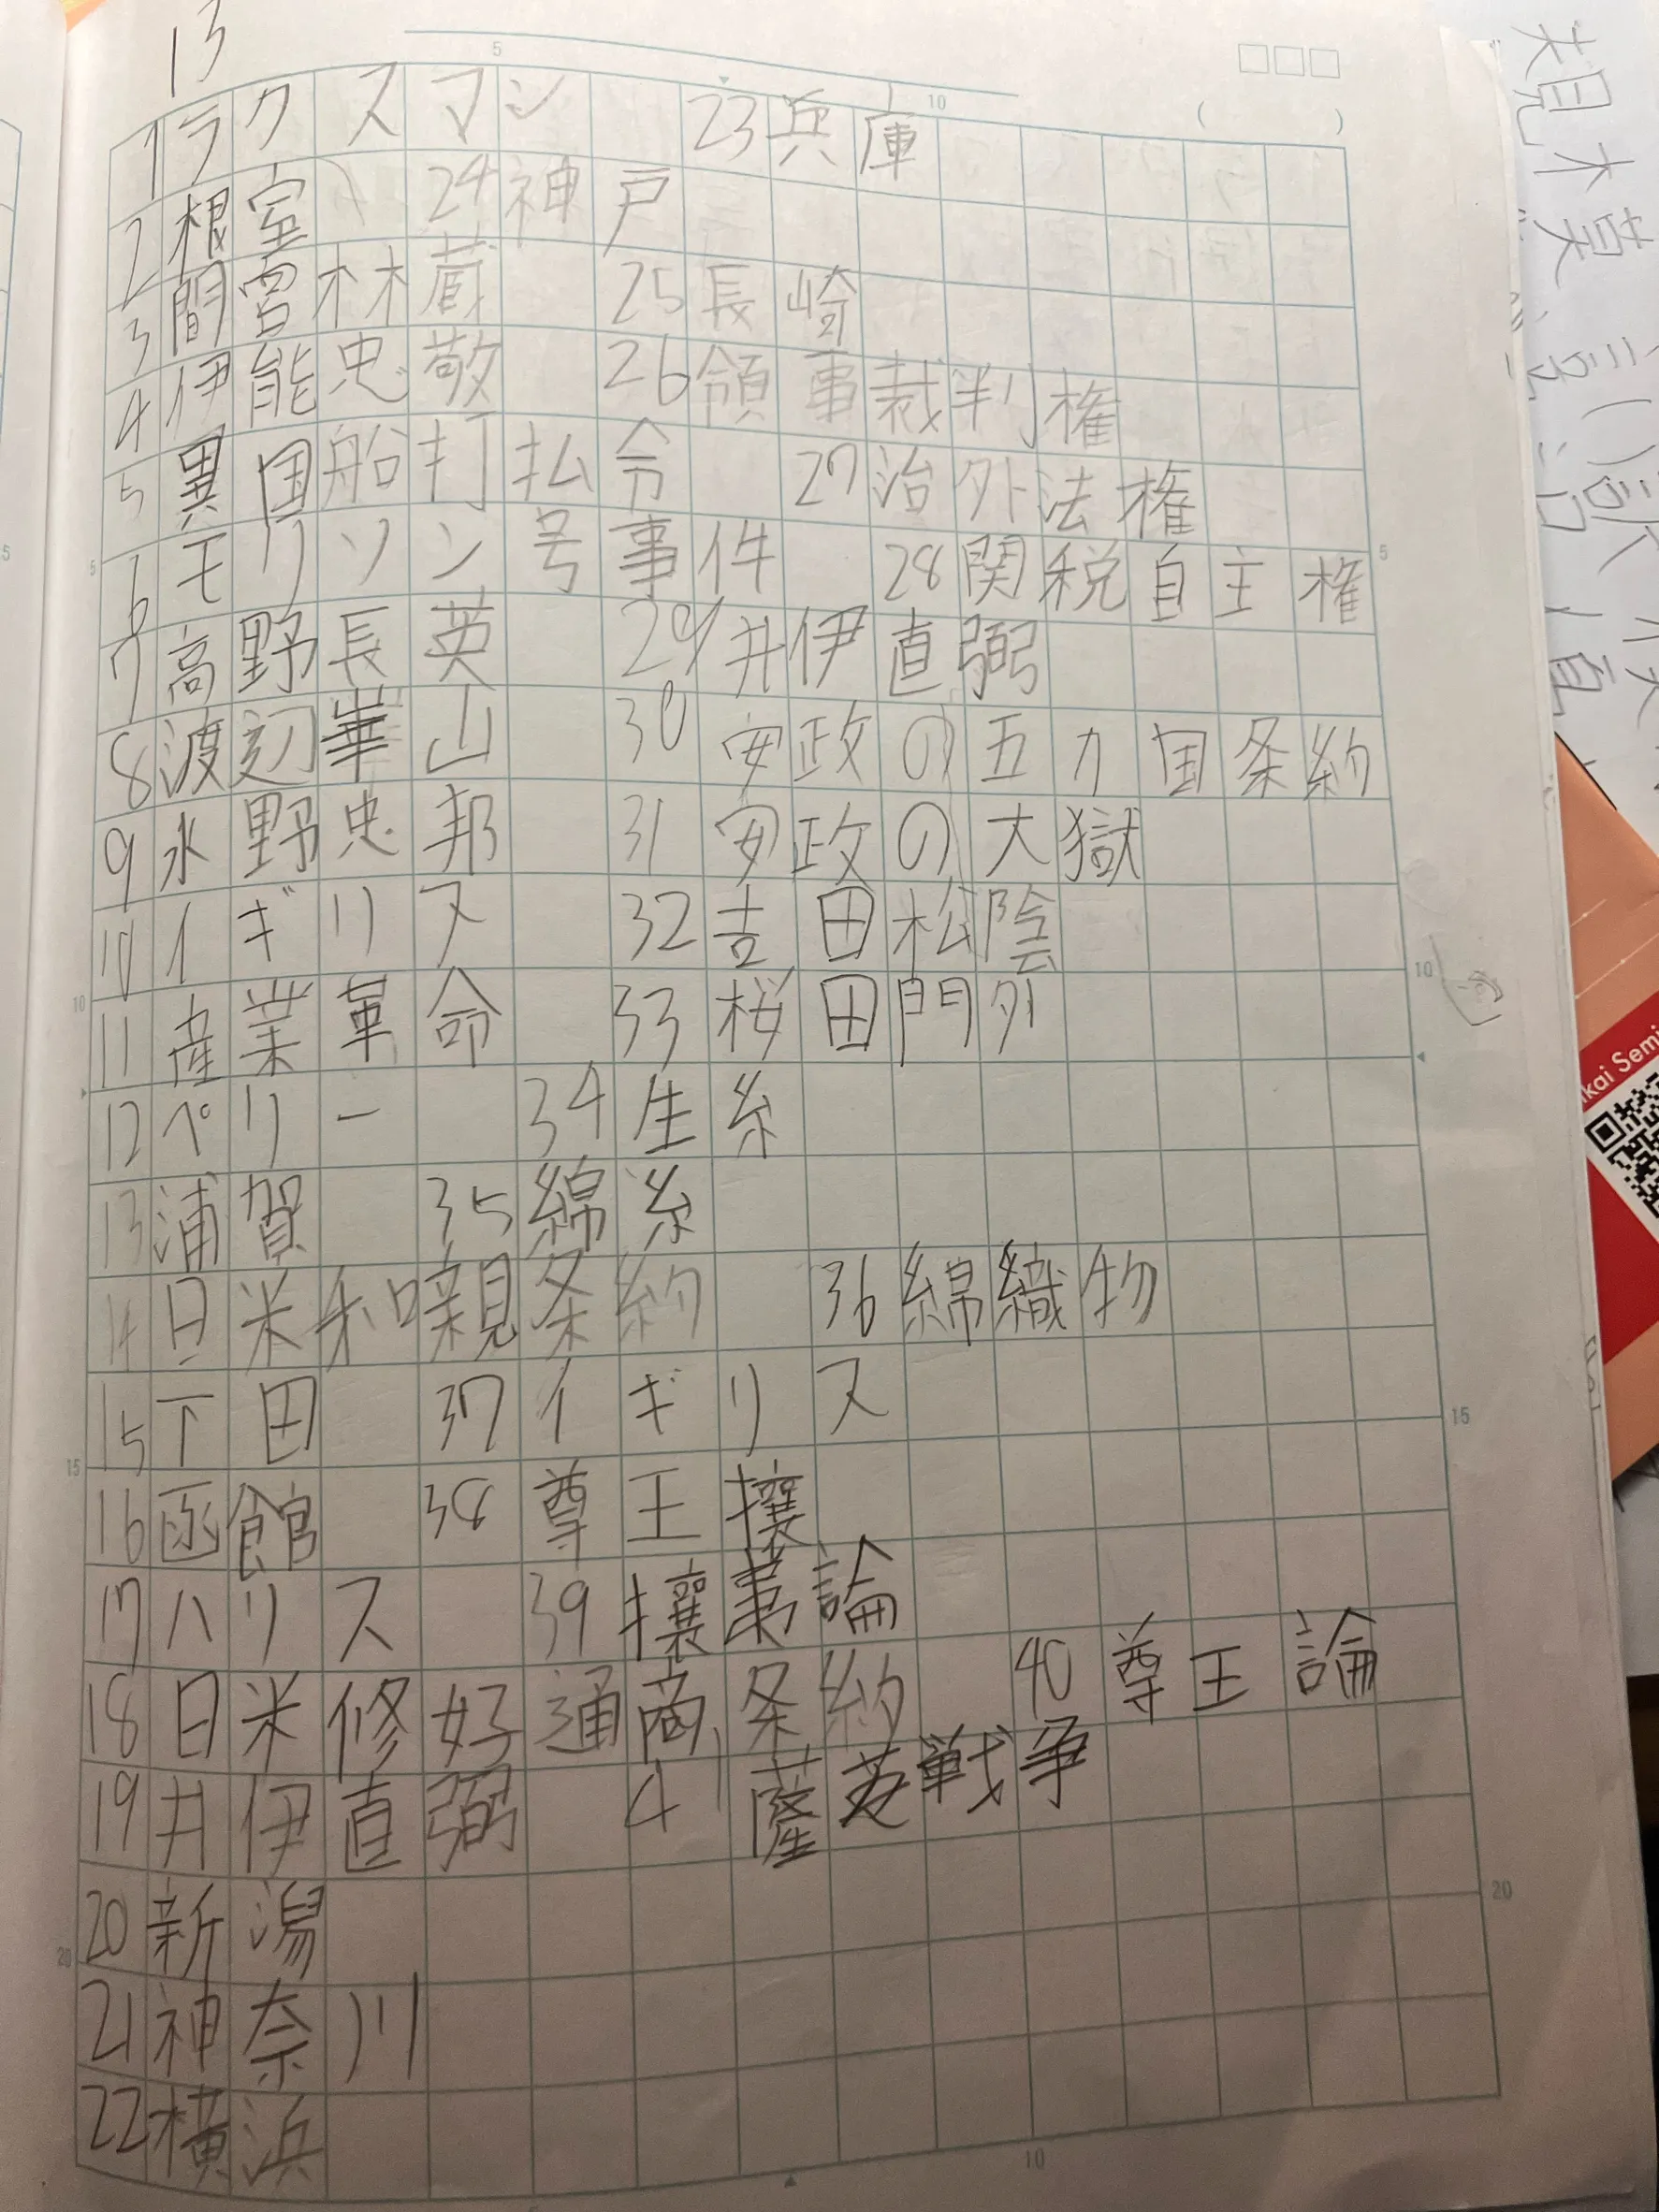 13
1 ラクスマン 23 兵庫
2 根室 24 神戸
3 間宮林蔵 25 長崎
4 伊能忠敬 26 領事裁判権
5 異国船打払令 27 治外法権
6 モリソン号事件 28 関税自主権
7 高野長英 29 井伊直弼
8 渡辺崋山 30 安政の五カ国条約
9 水野忠邦 31 安政の大獄
10 イギリス 32 吉田松陰
11 産業革命 33 桜田門外
12 ペリー 34 生糸
13 浦賀 35 綿糸
14 日米和親条約 36 綿織物
15 下田 37 イギリス
16 函館 38 尊王攘
17 ハリス 39 攘夷論
18 日米修好通商条約 40 尊王論
19 井伊直弼 41 薩英戦争
20 新潟
21 神奈川
22 横浜
5
10
5
10
15
20
5
10
15
20
10
kai Semi